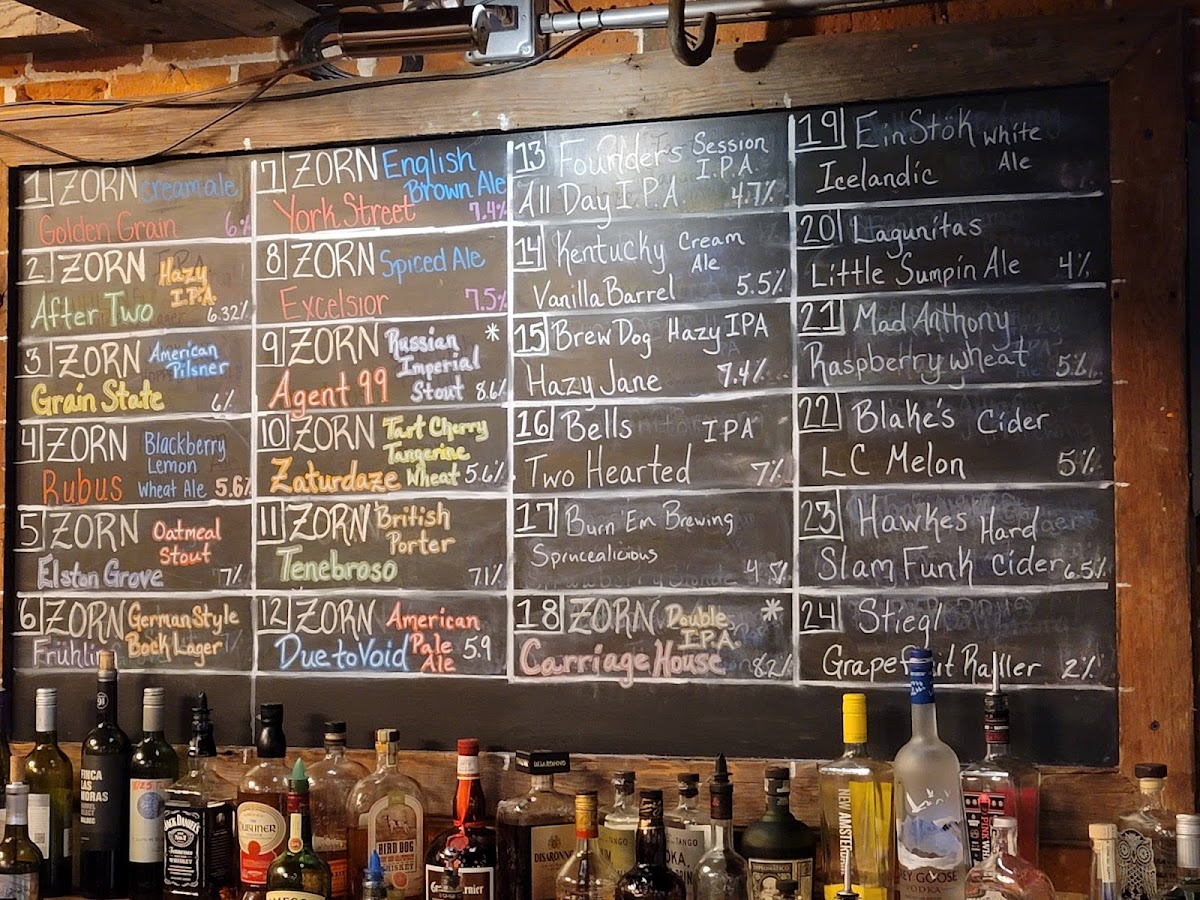 1 ZORN cream ale
Golden Grain 6%
2 ZORN Hazy
I.P.A.
After Two 6.32%
3 ZORN American
Pilsner
Grain State 6%
4 ZORN Blackberry
Lemon
Rubus Wheat Ale 5.6%
5 ZORN Oatmeal
Stout
Elston Grove 7%
6 ZORN German Style
Bock Lager
Frühlin
7 ZORN English
Brown Ale
York Street 7.4%
8 ZORN Spiced Ale
Excelsior 7.5%
9 ZORN Russian *
Imperial
Agent 99 Stout 8.6%
10 ZORN Tart Cherry
Tangerine
Zaturdaze Wheat 5.6%
11 ZORN British
Porter
Tenebroso 7.1%
12 ZORN American
Due to Void Pale 5.9
Ale
13 Founders Session
I.P.A.
All Day I.P.A. 4.7%
14 Kentucky Cream
Ale
Vanilla Barrel 5.5%
15 BrewDog Hazy IPA
Hazy Jane 7.4%
16 Bells IPA
Two Hearted 7%
17 Burn 'Em Brewing
Sprucealicious
18 ZORN Double *
I.P.A.
Carriage House 8.2%
19 EinStök white
Ale
Icelandic
20 Lagunitas
Little Sumpin Ale 4%
21 Mad Anthony
Raspberry wheat 5%
22 Blake's Cider
LC Melon 5%
23 Hawkes Hard
Slam Funk Cider 6.5%
24 Stiegl
Grapefruit Radler 2%
FINCA
LAS
MORAS
JACK DANIEL'S
Tennessee
WHISKEY
BIRD DOG
WHISKEY
DISARONNO
DISARONNO
NEW AMSTERDAM
GREY GOOSE
VODKA